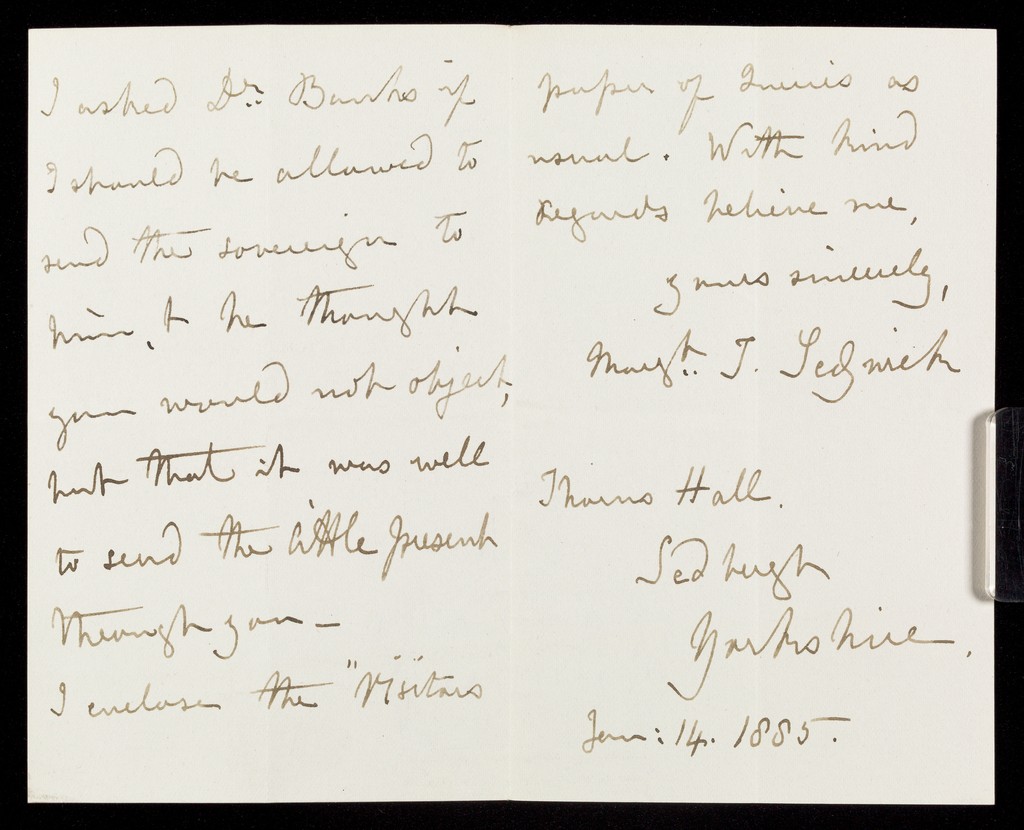 I asked Dr. Banks if
I should be allowed to
send the sovereign to
him, & he thought
you would not object,
but that it was well
to send the little present
through you –
I enclose the "Visitors"
paper of Queries as
usual. With kind
regards believe me,
yours sincerely,
Margt. J. Sedgwick
Thorns Hall.
Sedbergh
Yorkshire.
Jan: 14. 1885.